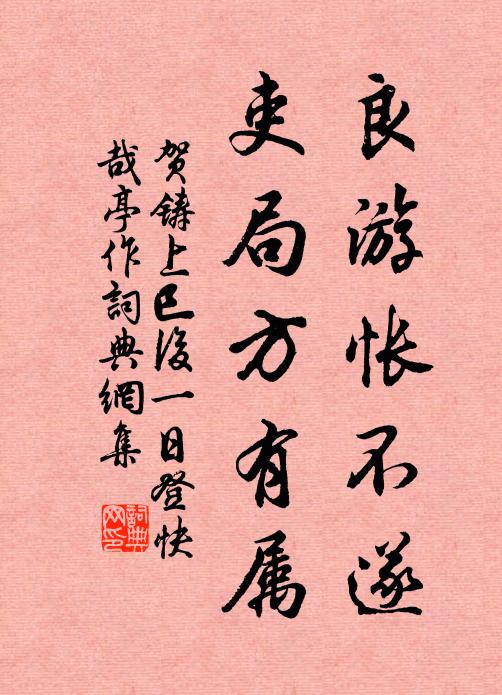 良游怅不遂
吏局方有属
贺铸上巳后一日登快
哉亭作词典网集
詞典
网印